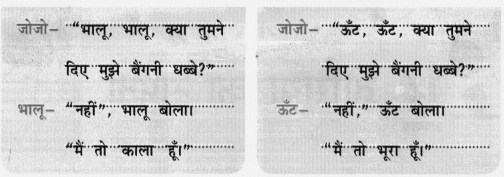 जोजो– “भालू, भालू, क्या तुमने
दिए मुझे बैंगनी धब्बे?”
भालू– “नहीं”, भालू बोला।
“मैं तो काला हूँ।”
जोजो– “ऊँट, ऊँट, क्या तुमने
दिए मुझे बैंगनी धब्बे?”
ऊँट– “नहीं,” ऊँट बोला।
“मैं तो भूरा हूँ।”